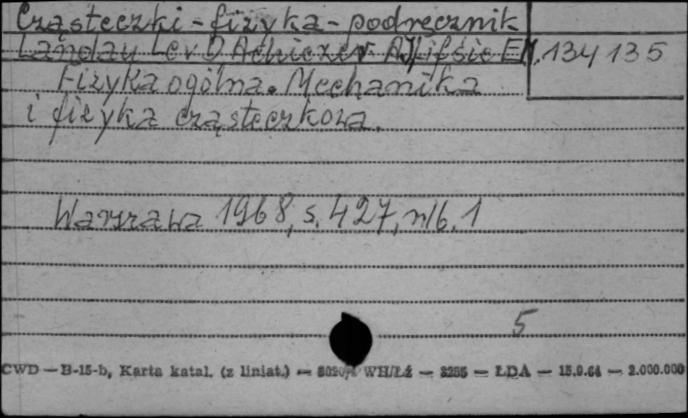 Cząsteczki - fizyka - podręcznik
Landau Lev D Achiezer A Lifsic EM. 134 135
Fizyka ogólna. Mechanika
i fizyka cząsteczkowa.
Warszawa 1968, s. 427, nlb. 1
5
CWD — B-15-b, Karta katal. (z liniat.) — WH/Łź — 3255 — ŁDA — 15.9.64 — 2.000.000